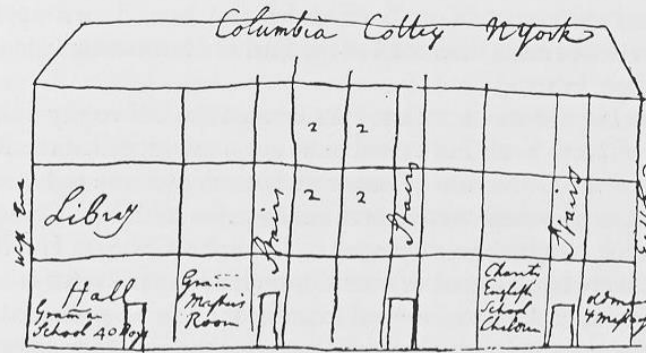 Columbia Colleg NYork
2 2
2 2
West End
Library
Stairs
Stairs
Stairs
Hall
Gramar
School 40 Boys
Gramr
Masters
Room
Charity
English
School
Children